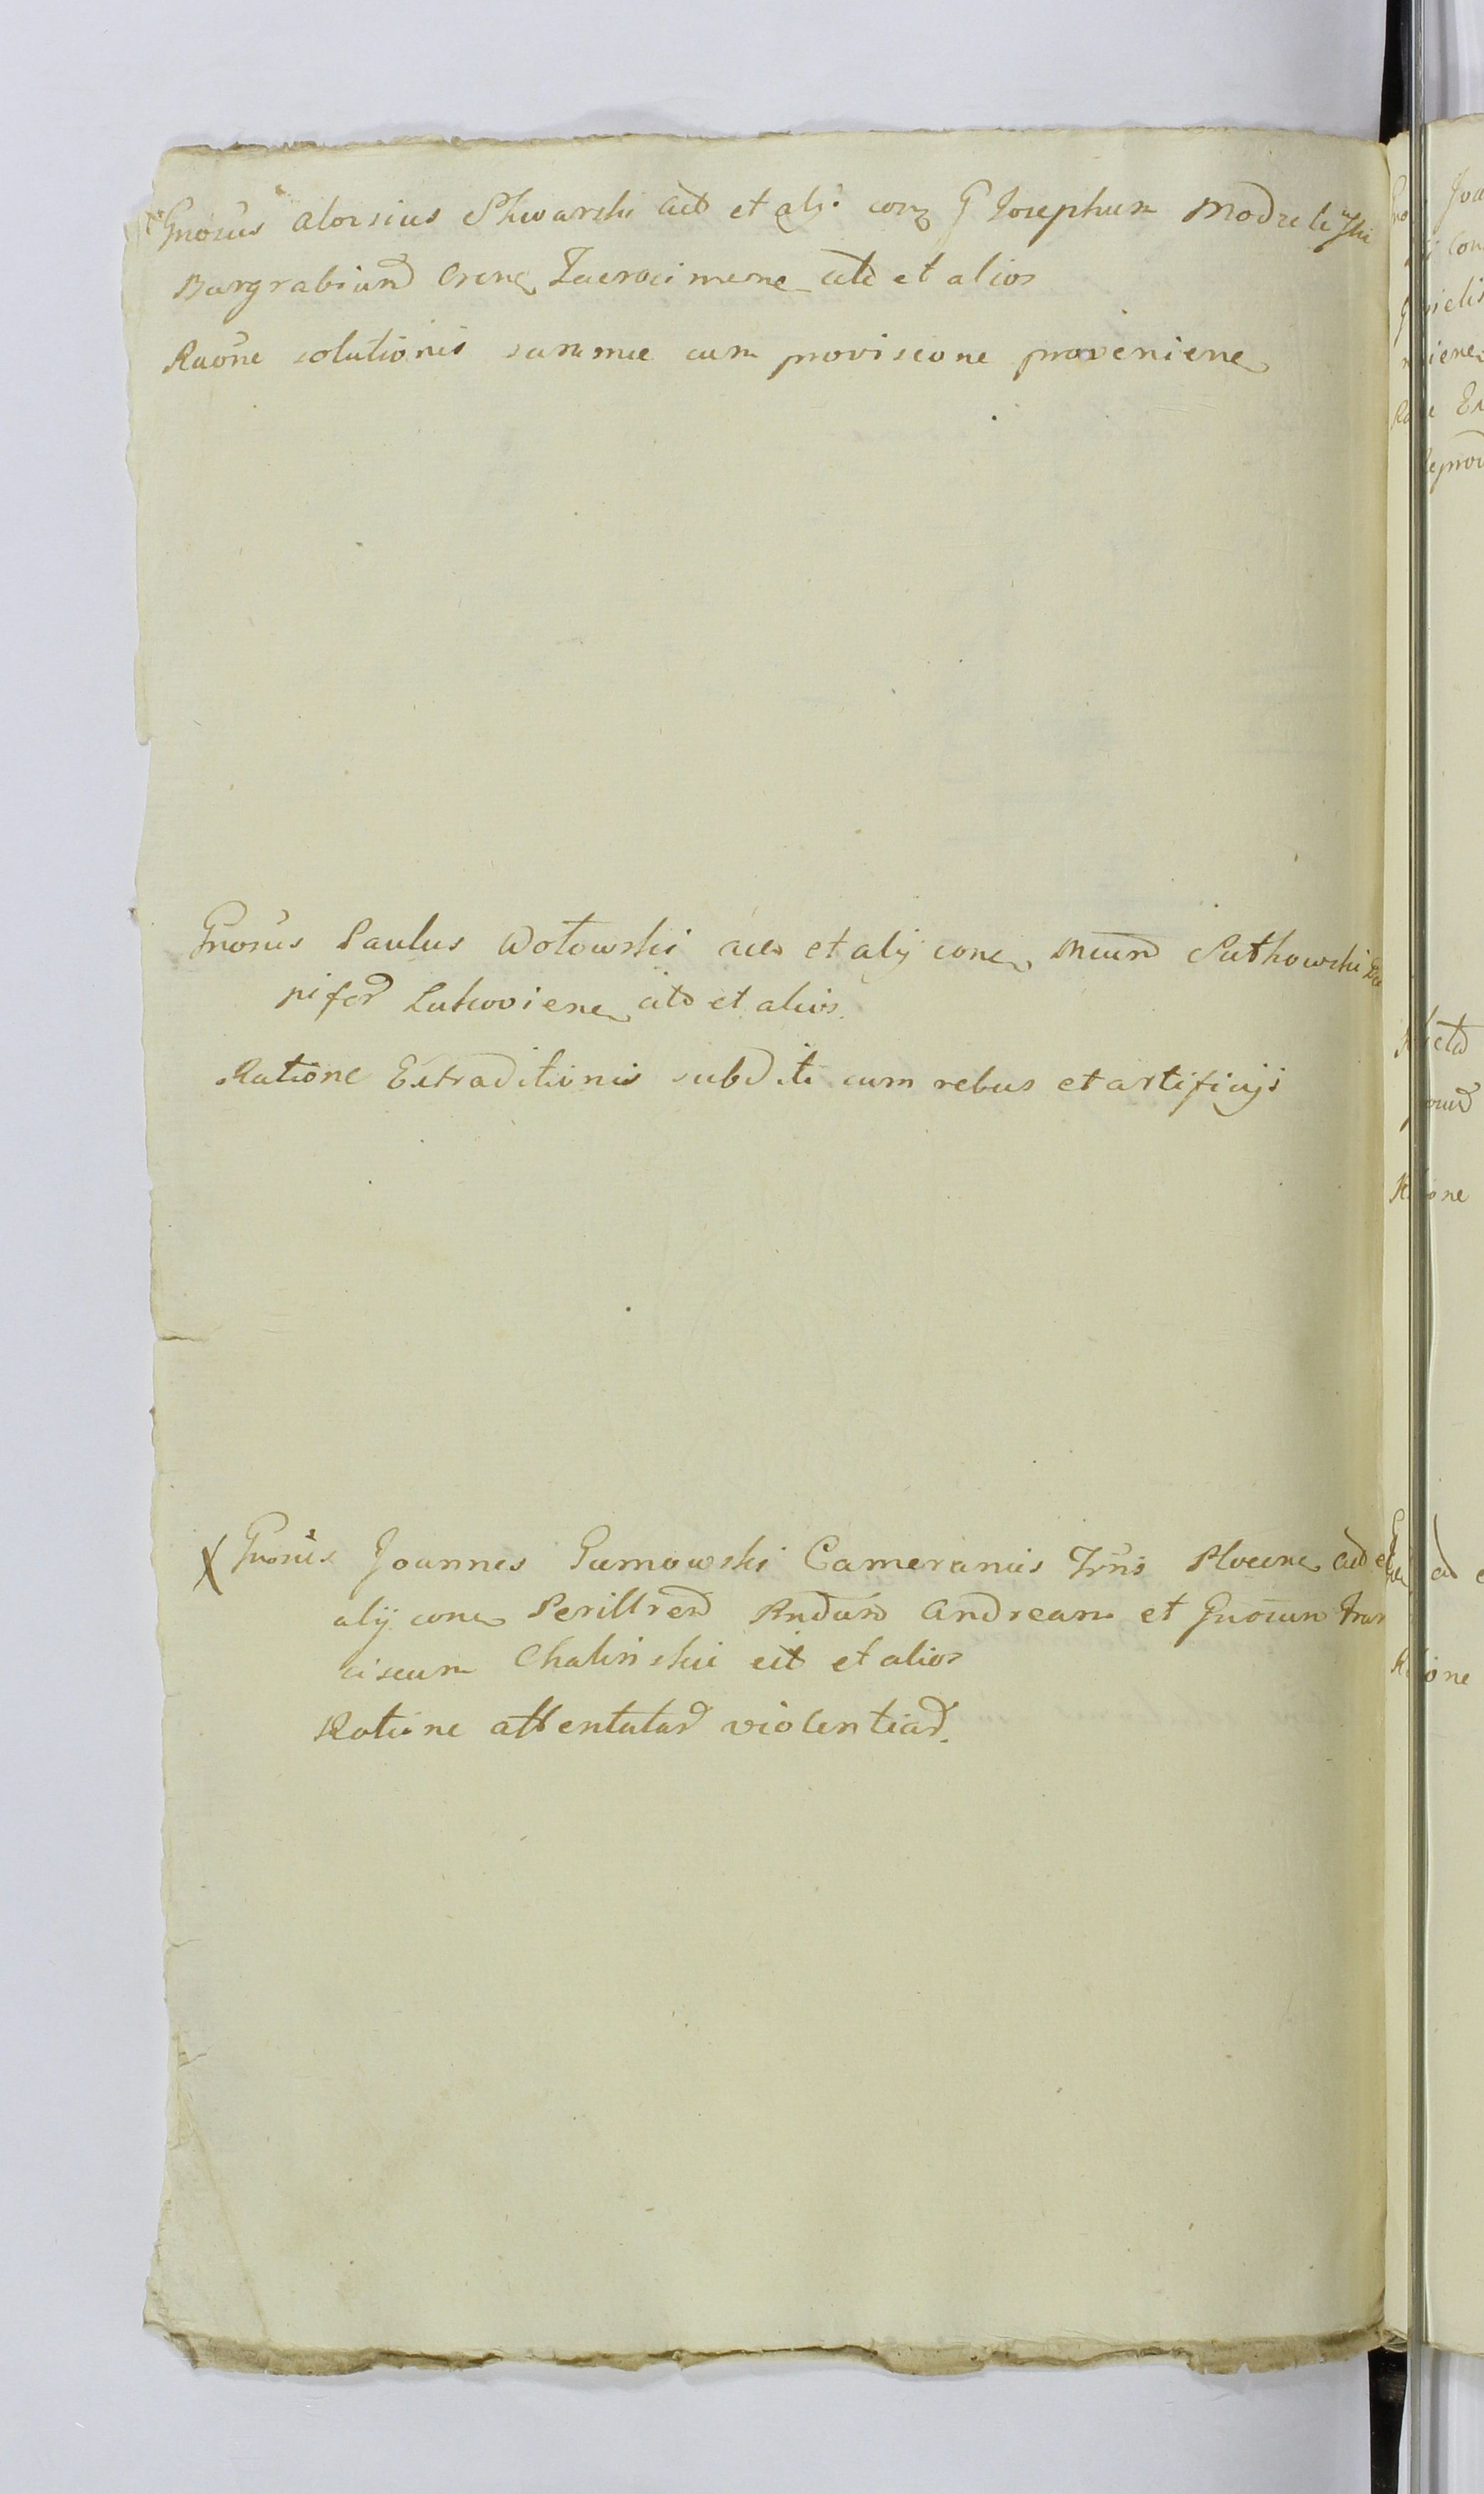 Gnosus Aloisius Skwarski act et alij conq G Josephum Modzeleski
Burgrabium Crenq Zacrocimene citd et alios
Raõne solutionis summae cum provisione provenienq
Gnosus Paulus Wołowski act et alij conq Mcum Sutkowski Da
pifer Lukoviene citd et alios.
Ratione Extraditionis subditi cum rebus et artificijs
X Gnosus Joannes Gumowski Cameranius Trris Plocenq act et
alij conq Perillrem Rndum Andream et Gnosum Fran
ciscum Chalinskie cit et alios
Ratione attentatar violentiar.